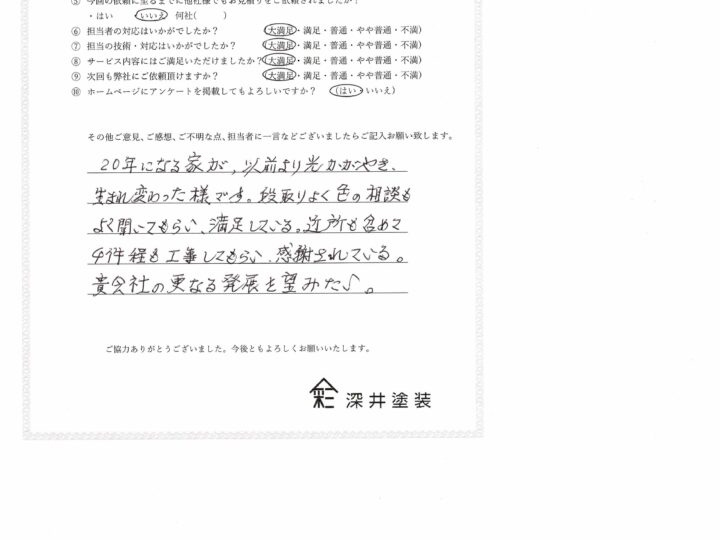 ⑤ 今回の依頼に至るまでに他社様でもお見積りをご依頼されましたか？
・はい ・いいえ 何社（　　）
⑥ 担当者の対応はいかがでしたか？ （大満足・満足・普通・やや普通・不満）
⑦ 担当の技術・対応はいかがでしたか？ （大満足・満足・普通・やや普通・不満）
⑧ サービス内容にはご満足いただけましたか？（大満足・満足・普通・やや普通・不満）
⑨ 次回も弊社にご依頼頂けますか？ （大満足・満足・普通・やや普通・不満）
⑩ ホームページにアンケートを掲載してもよろしいですか？ （はい・いいえ）
その他ご意見、ご感想、ご不明な点、担当者に一言などございましたらご記入お願い致します。
20年になる家が、以前より光かがやき、
生まれ変わった様です。段取りよく色の相談も
よく聞いてもらい、満足している。近所も含めて
4件程も工事してもらい、感謝されている。
貴会社の更なる発展を望みたい。
ご協力ありがとうございました。今後ともよろしくお願いいたします。
深井塗装